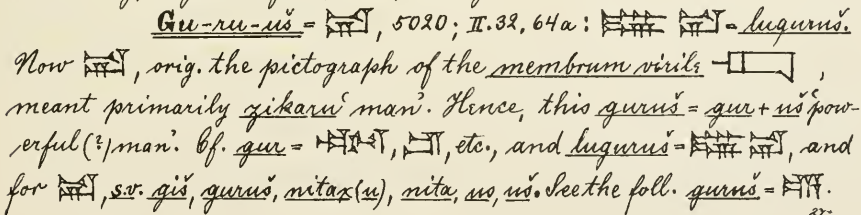 Gu-ru-uš = , 5020; II. 32, 64a: = luguruš.
Now , orig. the pictograph of the membrum virile ,
meant primarily zikaru 'man'. Hence, this guruš = gur + uš 'pow-
erful (?) man'. Cf. gur = , , etc., and luguruš = , and
for , s.v. giš, guruš, nitax(u), nita, us, uš. See the foll. guruš = .